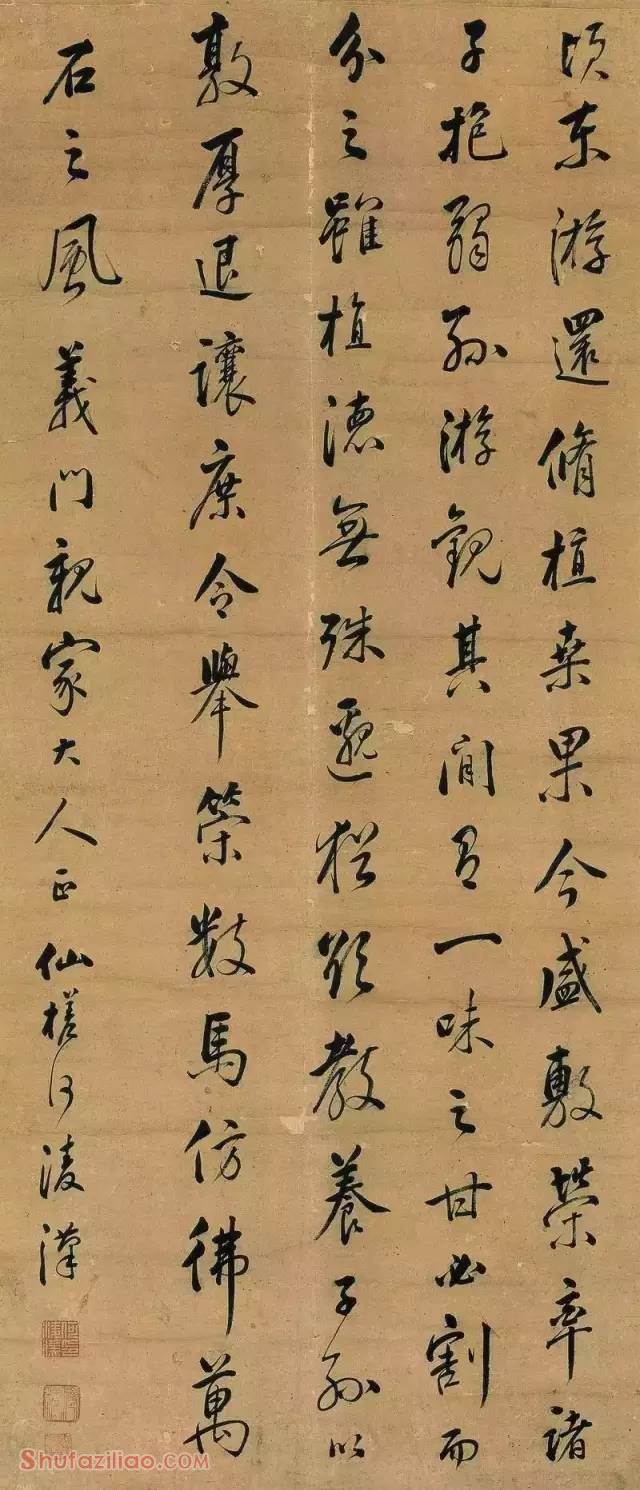 頃東游還脩植桑果今盛敷榮率諸
子抱弱孫游觀其間有一味之甘必割而
分之雖植德無殊邈猶欲教養子孫以
敦厚退讓庶令舉策數馬仿佛萬
石之風 義門親家大人正 仙槎何淩漢
Shufaziliao.com